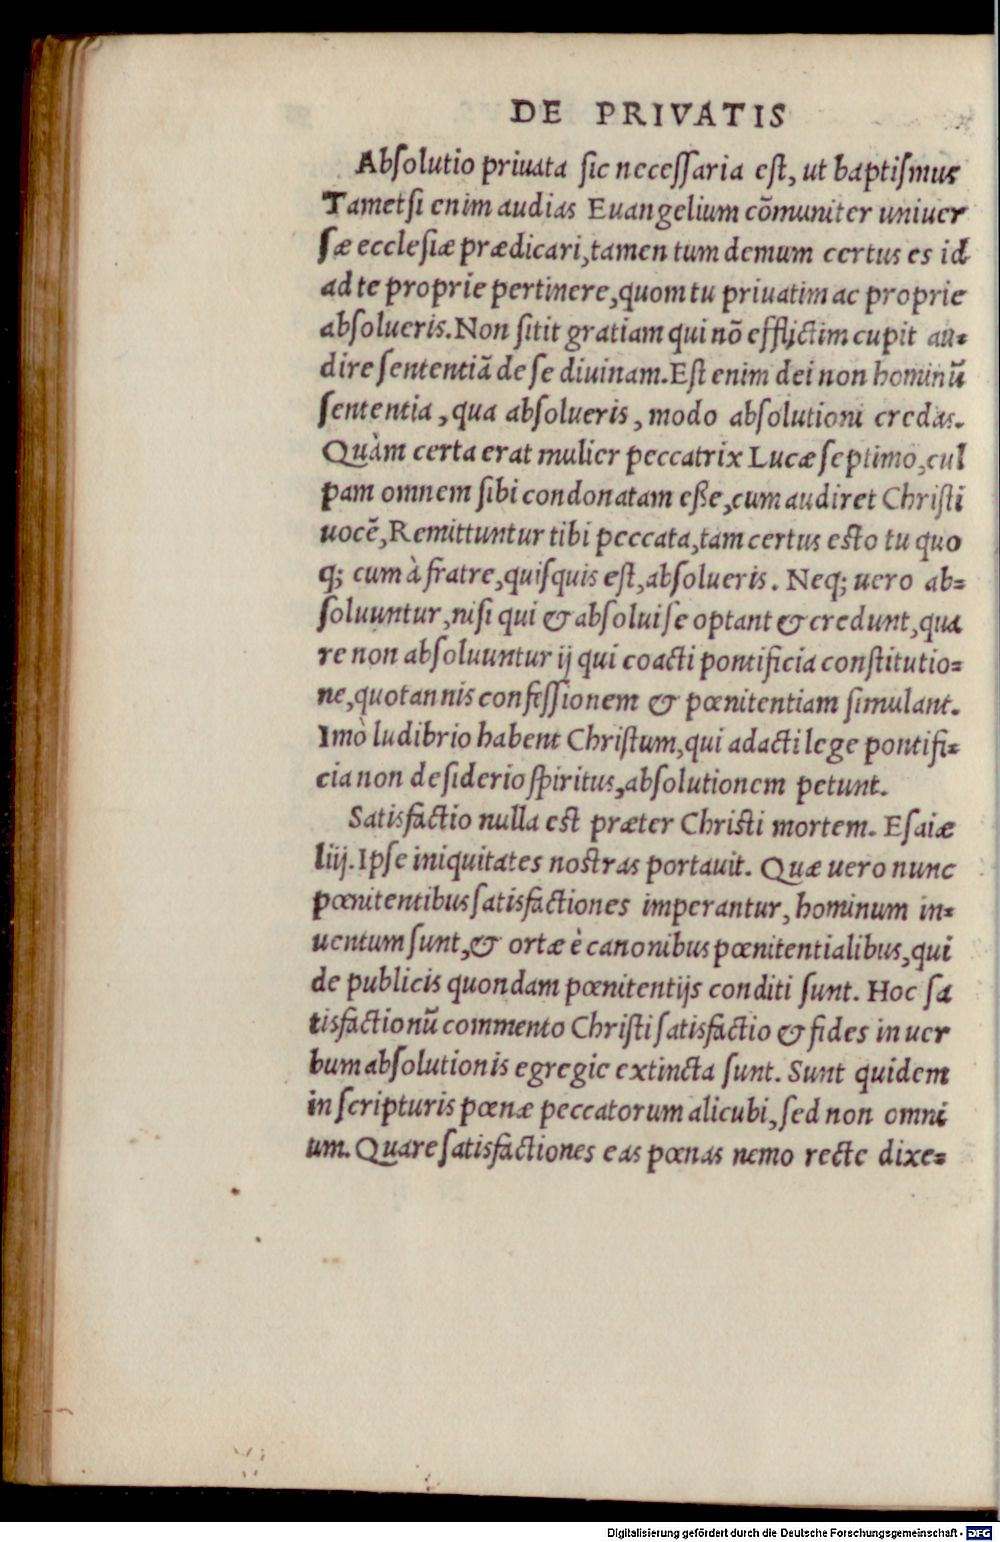 DE PRIVATIS
Absolutio priuata sic necessaria est, ut baptismus
Tametsi enim audias Euangelium cõmuniter uniuer
sæ ecclesiæ prædicari, tamen tum demum certus es id
ad te proprie pertinere, quom tu priuatim ac proprie
absolueris. Non sitit gratiam qui nõ efflictim cupit au=
dire sententiã de se diuinam. Est enim dei non hominũ
sententia, qua absolueris, modo absolutioni credas.
Quàm certa erat mulier peccatrix Lucæ septimo, cul
pam omnem sibi condonatam eße, cum audiret Christi
uocẽ, Remittuntur tibi peccata, tam certus esto tu quo
q; cum à fratre, quisquis est, absolueris. Neq; uero ab=
soluuntur, nisi qui & absolui se optant & credunt, qua
re non absoluuntur ij qui coacti pontificia constitutio=
ne, quotannis confessionem & pœnitentiam simulant.
Imò ludibrio habent Christum, qui adacti lege pontifi=
cia non desiderio spiritus, absolutionem petunt.
Satisfactio nulla est præter Christi mortem. Esaiæ
liij. Ipse iniquitates nostras portauit. Quæ uero nunc
pœnitentibus satisfactiones imperantur, hominum in=
uentum sunt, & ortæ è canonibus pœnitentialibus, qui
de publicis quondam pœnitentijs conditi sunt. Hoc sa
tisfactionũ commento Christi satisfactio & fides in uer
bum absolutionis egregie extincta sunt. Sunt quidem
in scripturis pœnæ peccatorum alicubi, sed non omni
um. Quare satisfactiones eas pœnas nemo recte dixe=
Digitalisierung gefördert durch die Deutsche Forschungsgemeinschaft - DFG